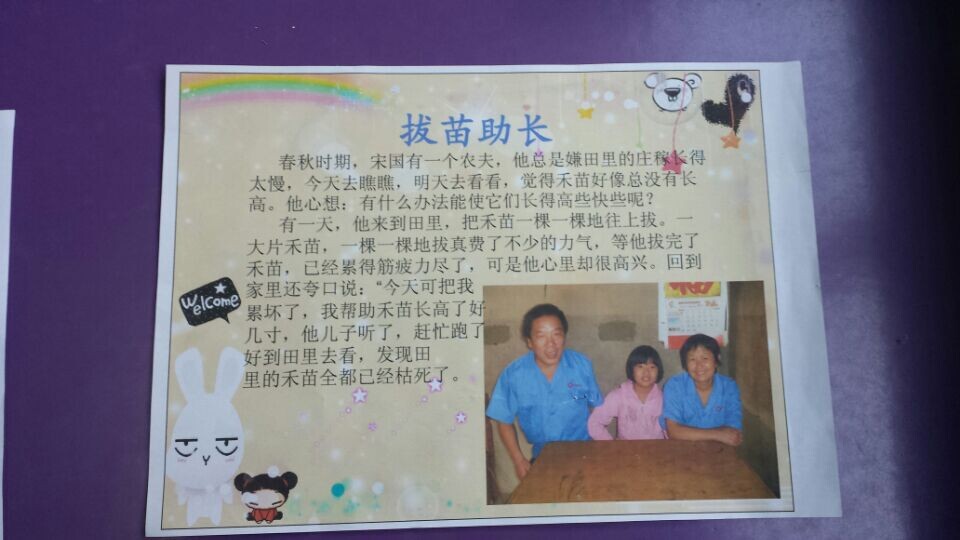 拔苗助长
春秋时期，宋国有一个农夫，他总是嫌田里的庄稼长得
太慢，今天去瞧瞧，明天去看看，觉得禾苗好像总没有长
高。他心想：有什么办法能使它们长得高些快些呢？
有一天，他来到田里，把禾苗一棵一棵地往上拔。一
大片禾苗，一棵一棵地拔真费了不少的力气，等他拔完了
禾苗，已经累得筋疲力尽了，可是他心里却很高兴。回到
家里还夸口说：“今天可把我
累坏了，我帮助禾苗长高了好
几寸，他儿子听了，赶忙跑了
好到田里去看，发现田
里的禾苗全都已经枯死了。
Welcome